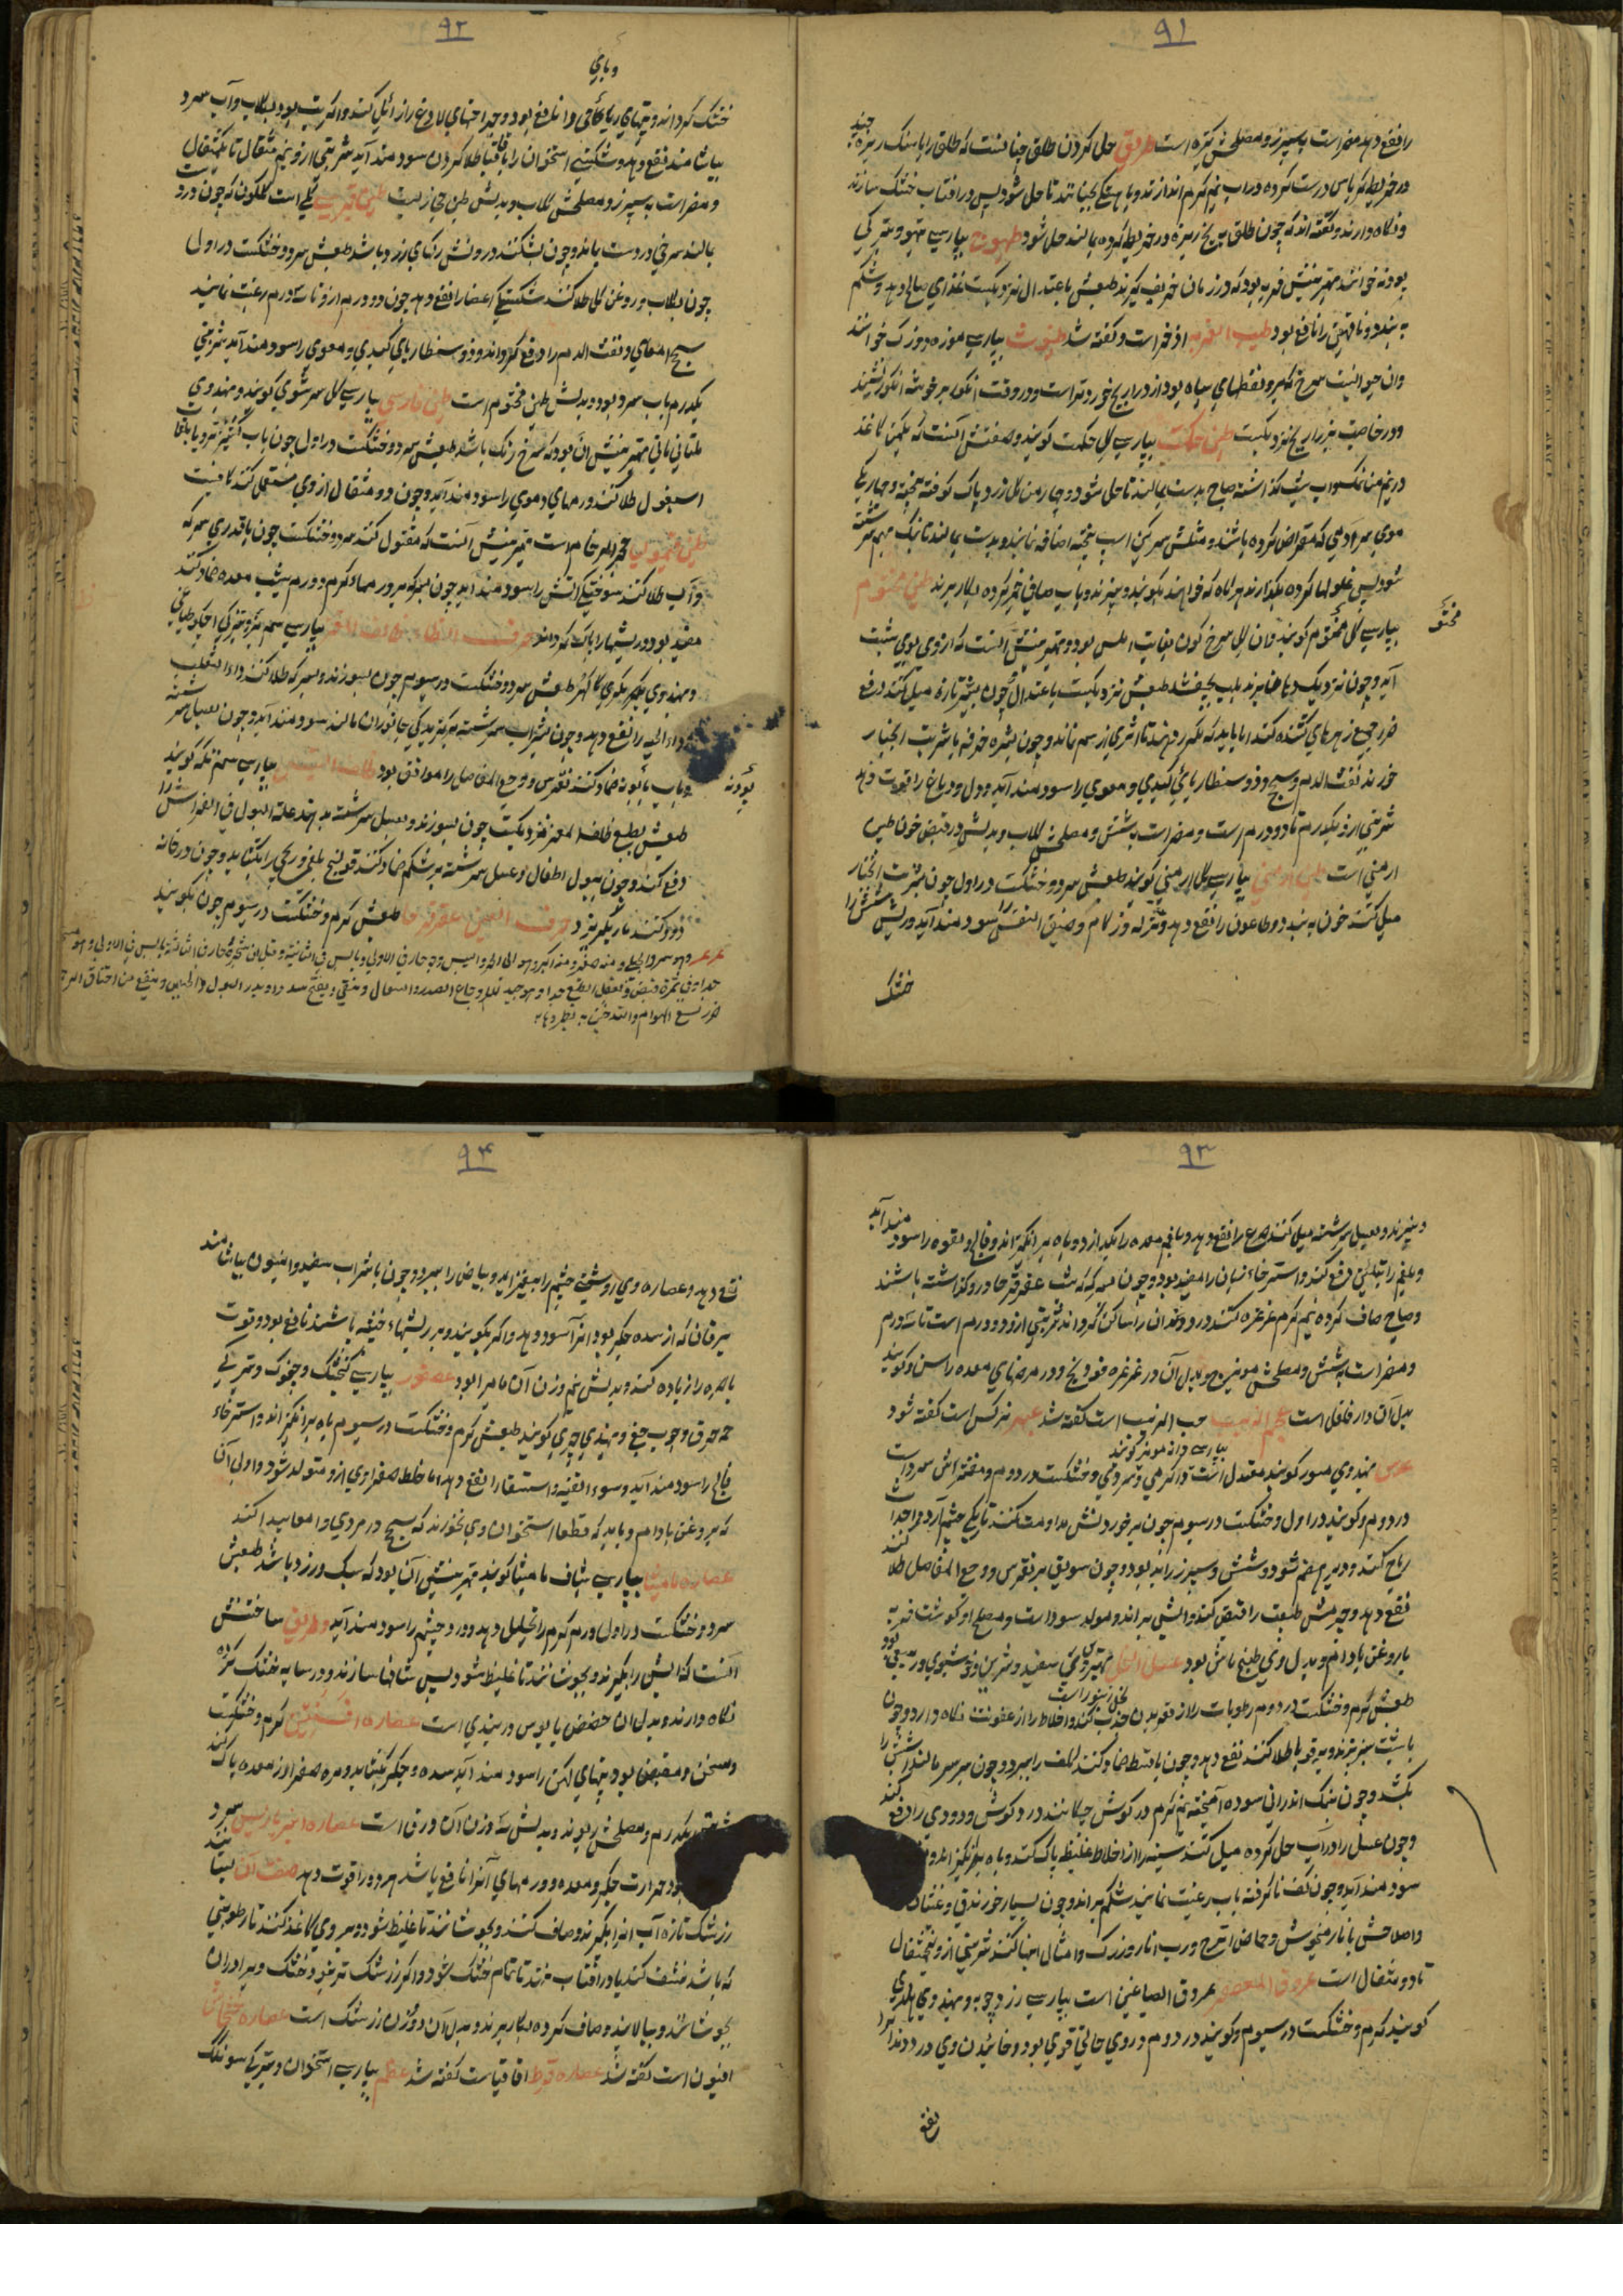 ۹۱
را نفع دهد مضر است به سپرز و مصلحش کتیره است طریق حل کردن طلق چنانست که طلق را با سنک ریزه چند
در خریطه کرباس درست کرده در آب نیم کرم اندازند و با هستکی بجنبانند تا حل شود پس در افتاب خشک سازند
و نکاه دارند و کفته اند که چون طلق بیخ ریزه در خریطه کرده بمالند حل شود طیهوج بپارسی تیهو و بترکی
بودنه خوانند بهترینش فربه بود که در زمان خریف کیرند طبعش باعتدال نزدیکست غذای صالح دهد و شکم
به بندد و ناقهین را نافع بود طیب العرب اذخر است و کفته شد طیوث بپارسی موزه دوزک خوانند
وان حیوانیست سرخ و بر و نقطهای سیاه بود از ذراریح خوردتر است و در وقت انکور بر خوشه انکور نشیند
و در خاصیت بذراریح نزدیکست طین حکمت بپارسی کل حکمت کویند و صفتش آنست که یکمن کاغذ
در نیم من نمکسواب شب کذاشته صباح بدست بمالند تا حل شود و چهار من کل زرد پاک کوفته بیخته و چهار یک
موی سر آدمی که مقراض کرده باشند و مثلش سرکین اسب بیخته اضافه نمایند و بدست بمالند تا نیک بهم سرشته
شود پس غلولها کرده بکذارند هر کاه که خواهند بکوبند و بیزند و باب صافی خمیر کرده بکار برند طین مختوم
بپارسی کل مختوم کویند وان کل سرخ کون بغایت املس بود و بهترینش آنست که از وی بوی شبت
آید و چون نزدیک دهان برند بلب بچفسد طبعش نزدیکست باعتدال چون بشیر تازه میل کنند دفع
ضرر جمیع زهرهای کشنده کند اما باید که مکرر دهند تا اثری از سم نماند و چون بشیره خرفه یا شربت انجبار
خورند نفث الدم و سحج و ذوسنطاریای کبدی و معوی را سودمند آید و دل و دماغ را قوت دهد
شربتی از و یکدرم تا دو درم است و مضر است بشش و مصلحش کلاب و بدلش در قبض خون طین
ارمنی است طین ارمنی بپارسی کل ارمنی کویند طبعش سرد و خشکست در اول چون بشربت انجبار
میل کنند خون به بندد و طاعون را نفع دهد و نزله و زکام و ضیق النفس را سودمند آید و ریش شش را
خشک
مختوم
۹۲
وبائی
خشک کرداند و تبهای وبائی را نافع بود و جراحتهای لادغ را زائل کند و اکر تب بود بکلاب و آب سرد
بیاشامند نفع دهد و شکستکی استخوان را با قاقیا طلا کردن سودمند آید شربتی از و نیم مثقال تا یکمثقال
و مضر است به سپرز و مصلحش کلاب و بدلش طین حجازیست طین قبرسی کلی است کلکون که چون در دست
بمالند سرخی در دست بماند و چون بشکنند درونش رکهای زرد باشد طبعش سرد و خشکست در اول
چون بکلاب و روغن کل طلا کنند شکستکی اعضا را نفع دهد چون دو درم از و تا سه درم رغبت نمایند
سحج امعای و نفث الدم را دفع کرداند و ذوسنطاریای کبدی و معوی را سودمند آید شربتی
یکدرم باب سرد بود و بدلش طین مختوم است طین فارسی بپارسی کل سرشوی کویند و بهندوی
ملتانی ماتی بهترینش ان بود که سرخ رنک باشد طبعش سرد و خشکست در اول چون باب کشنیز تر و یا باتفاق
اسبغول طلا کنند ورمهای دموی را سودمند آید و چون دو مثقال از وی مستعمل کنند کافیست
طین قیمولیا حجر الرخام است بهترینش آنست که مقتول کنند سرد و خشکست چون باقدری سرکه
و آب طلا کنند سوختکی اتش را سودمند اید چون بسرکه بر ورمهاء کرم و ورم شیب معده ضماد کنند
مفید بود و ریشها را پاک کرداند حرف الظاء ظلف المعز بپارسی سم بز و بترکی ایچکو طیاغی
و بهندوی بکر بکری کا کهر طبعش سرد و خشکست در سیوم چون بسوزند و بسرکه طلا کنند داء الثعلب
و داء الحیه را نفع دهد و چون بشراب سرشته بر کزیدکی جانوران مالند سودمند آید و چون بعسل سرشته
و باب بابونه ضماد کنند نقرس و وجع المفاصل را موافق بود ظلف التیس بپارسی سم تکه کویند
طبعش بطبع ظلف المعز نزدیکست چون بسوزند و بعسل سرشته بدهند علة البول فی الفراش را
دفع کند و چون ببول اطفال و عسل سرشته بر شکم ضماد کنند قولنج بلغمی و ریحی را بکشاید و چون در خانه
دود کنند مار بکریزد حرف العین عاقر قرحا طبعش کرم و خشکست در سیوم چون بکوبند
بودنه
عرعر و هو سرو الجبلی و منه صغیر و منه کبیر و هو الی الحر و الیبس و هو حار فی الاولی و یابس فی الثانیة و قیل ان شجره حار فی الثالثة یابس فی الاولی و هو
۹۳
و بیزند و بعسل سرشته میل کنند صرع را نفع دهد و بلغم معده را بکدازد و باه بر انکیزاند و فالج و لقوه را سودمند آید
و بلغم را بتلیین دفع کند و استرخاء زبان را مفید بود و چون سرکه که شب عاقرقرحا در و کذاشته باشند
و صباح صاف کرده نیم کرم غرغره کنند درد دندان را ساکن کرداند شربتی از و دو درم است تا سه درم
و مضر است بشش و مصلحش مویزج و بدل آن در غرغره فودنج و در مرضهای معده راسن و کویند
بدل آن دار فلفل است عجم الزبیب حب الزبیب است کفته شد عبهر نرکس است کفته شود
بپارسی دانه مویز کویند
عدس بهندوی مسور کویند معتدل است در کرمی و سردی و خشکست در دوم و مقشرش سرد است
در دوم و کویند در اول و خشکست در سیوم چون بر خوردنش مداومت کنند تاریکی چشم آرد و احداث
ریاح کند و دیر هضم شود و شش و سپرز را بد بود و چون سویق بر نقرس و وجع المفاصل طلا کنند
نفع دهد و جرمش طبیعت را قبض کند و آبش براند و مولد سودا است و مصلح او کوشت فربه
با روغن بادام و بدل وی طبیخ ماش بود عسل النحل بهترین وی سفید و شیرین و خوشبوی و ربیعی بود
طبعش کرم و خشکست در دوم رطوبات را از قعر بدن جذب کند و اخلاط را از عفونت نکاه دارد و چون
با شبت بپزند و بر قوبا طلا کنند نفع دهد و چون باقسط ضماد کنند کلف را ببرد و چون بر سر مالند رشک را
بکشد و چون نمک اندرانی سوده آمیخته نیم کرم در کوش چکانند درد کوش و دوی را دفع کند
و چون عسل را در آب حل کرده میل کنند سینه را از اخلاط غلیظ پاک کند و باه بر انکیزاند و
سودمند آید و چون کف نا کرفته باب رغبت نمایند شکم براند و چون بسیار خورند قی و غثیان
و اصلاحش بانار میخوش و حماض اترج و رب انار و زرک و امثال اینها کنند شربتی از و پنجمثقال
تا دو مثقال است عروق المعصفر عروق الصباغین است بپارسی زرد چوبه و بهندوی هلدی
کویند کرم و خشکست در سیوم و کویند در دوم و روی جالی قوی بود و خائیدن وی درد دندانرا
نفع
۹۴
نفع دهد و عصاره وی روشنی چشم را بیفزاید و بیاض را ببرد و چون با شراب سفید و انیسون بیاشامند
یرقان که از سده جکر بود انرا سود دهد و اکر بکوبند و بر ریشهاء خبیثه پاشند نافع بود و قوت
باصره را زیاده کند و بدلش نیم وزن آن مامیران بود عصفور بپارسی کنجشک و چغوک و بترکی
جمجرق و چوب چغ و بهندی چری کویند طبعش کرم و خشکست در سیوم باه بر انکیزاند و استرخاء
فالج را سودمند آید و سوء القنیه و استسقا را نفع دهد اما خلط صفراوی از و متولد شود و اولی آن
که بر وغن بادام و باید که قطعا استخوان وی نخورند که سحج در مری و امعا پیدا کند
عصاره مامیثا بپارسی شیاف مامیثا کویند بهترینش آن بود که سبک و زرد باشد طبعش
سرد و خشکست در اول ورم کرم را تحلیل دهد و درد چشم را سودمند آید و طریق ساختنش
آنست که آبش را بکیرند و بجوشانند تا غلیظ شود پس شافها سازند و در سایه خشک کرده
نکاه دارند و بدل ان حضض یا بوش دربندی است عصاره افسنتین کرم و خشکست
و مسخن و مقبض بود تبهای کهن را سودمند آید سده و جکر بکشاید و مره صفرا از معده پاک کند
شربتش یکدرم و مصلحش ریوند و بدلش سه وزن آن ورق است عصاره انبرباریس سرد
بود حرارت جکر و معده و ورمهای آنرا نافع باشد و هر دو را قوت دهد صفت آن بستانند
زرشک تازه آب انرا بکیرند و صاف کنند و بجوشانند تا غلیظ شود و بر وی کاغذ کنند تا رطوبتی
که باشد منشف کند یا در آفتاب نهند تا تمام خشک شود و اکر زرشک تر نبود خشک ویرا در ان
بجوشانند و بپالایند و صاف کرده بکار برند و بدل آن دو وزن زرشک است عصاره خشخاش
افیون است کفته شد عصاره قرظ اقاقیاست کفته شد عظم بپارسی استخوان و بترکی سونکک